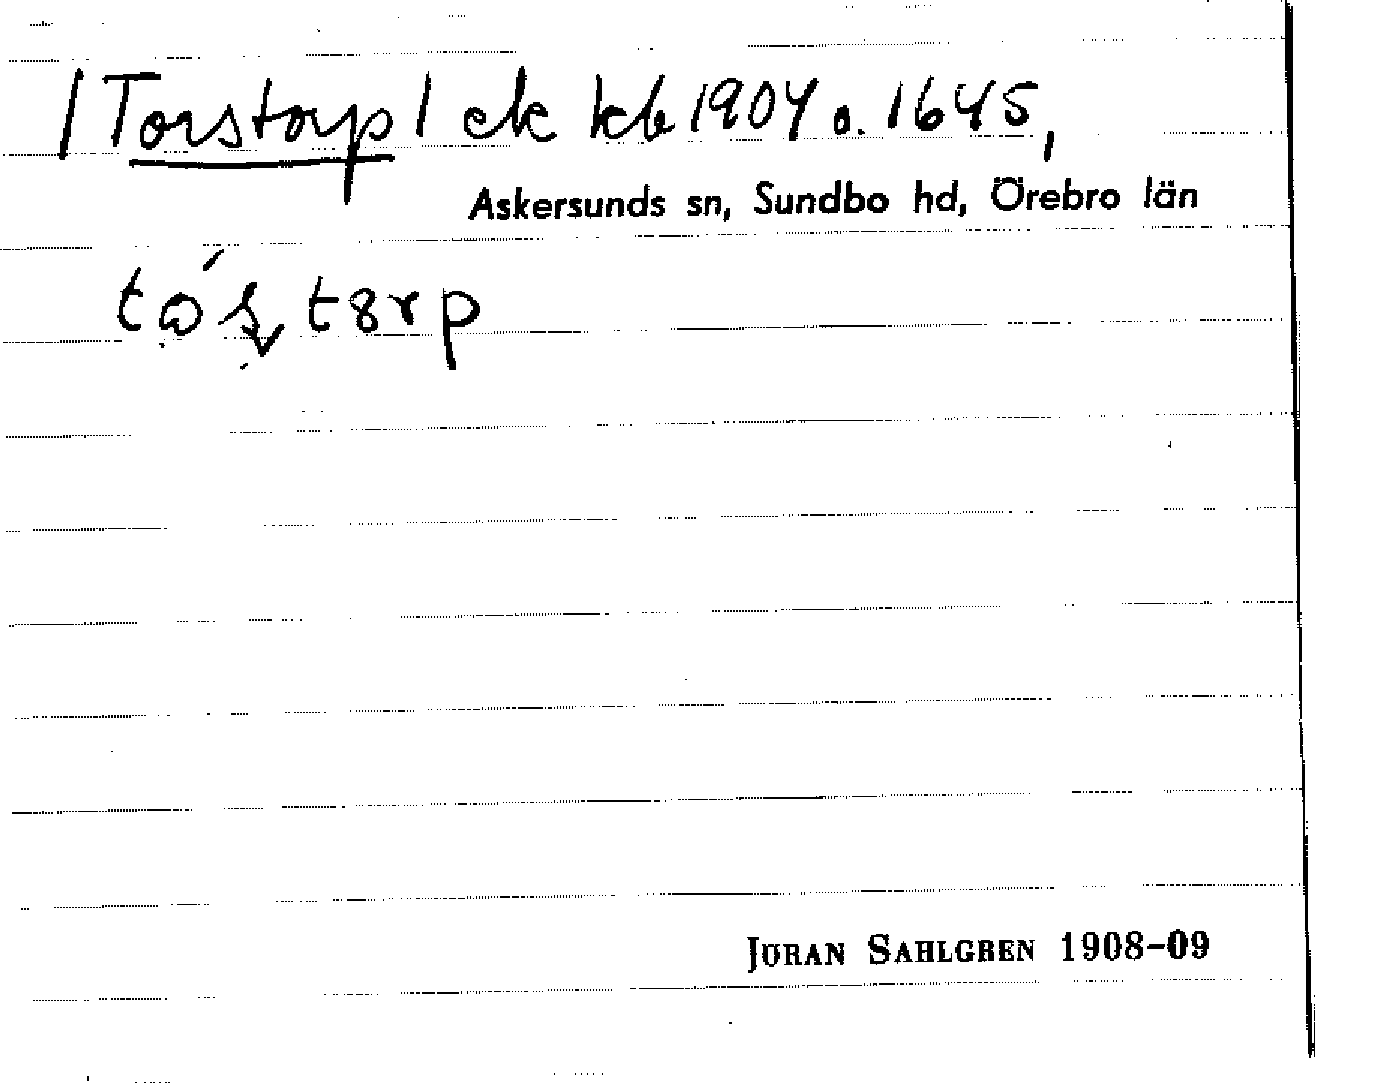 /Torstorp/ ek kb 1904 o. 1645,
Askersunds sn, Sundbo hd, Örebro län
JÖRAN SAHLGREN 1908–09